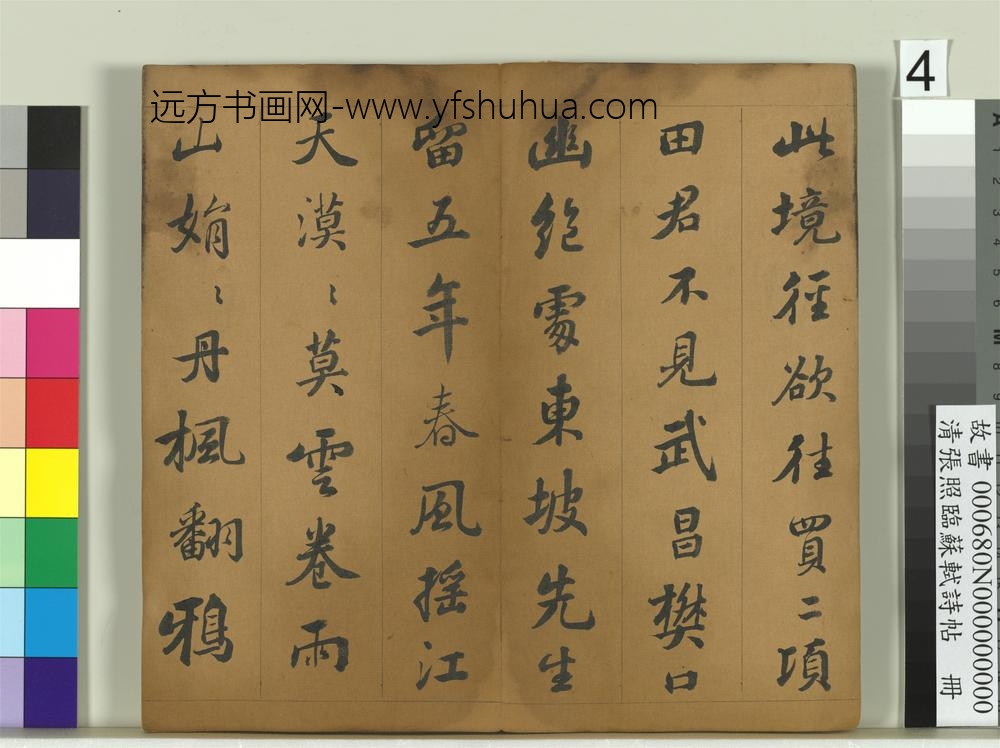 远方书画网-www.yfshuhua.com
4
此境徑欲往買二頃
田君不見武昌樊口
幽絶處東坡先生
留五年春風摇江
天漠〻莫雲卷雨
山娟〻丹楓翻鴉
故書 000680N000000000
清張照臨蘇軾詩帖 冊